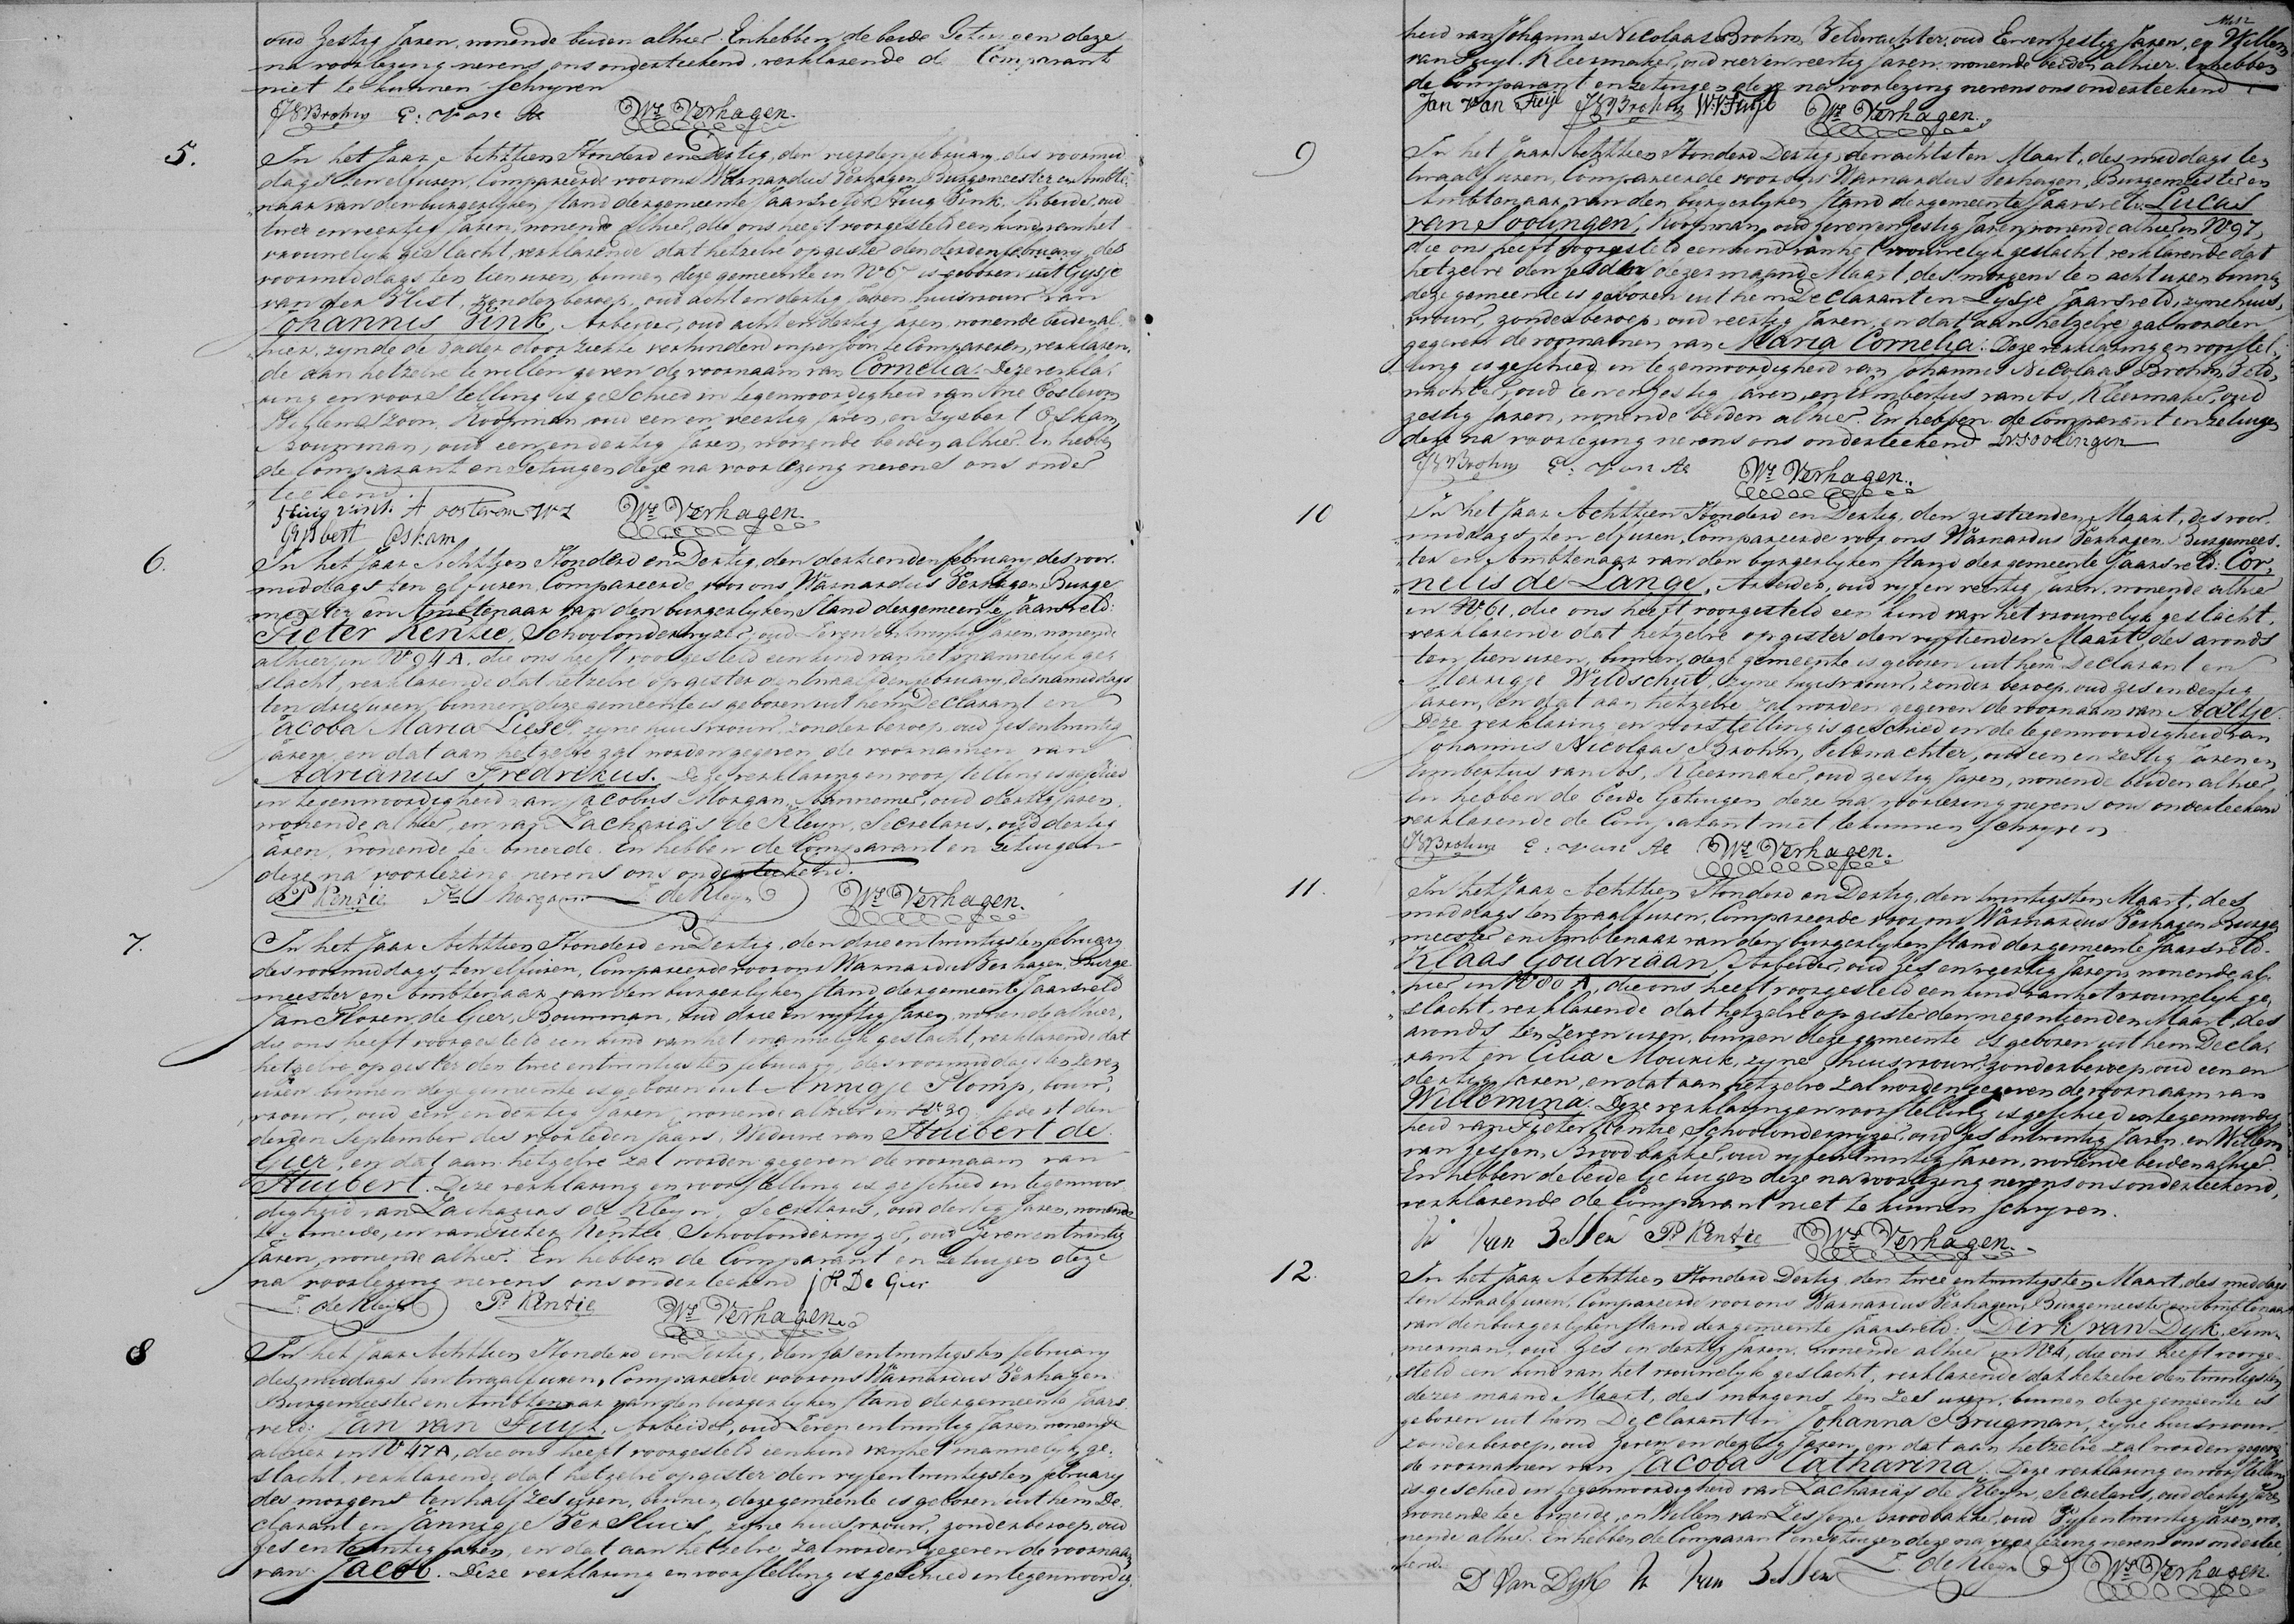 oud zestig Jaren, wonende beiden alhier. En hebben de beide Getuigen deze
na voorlezing nevens ons onderteekend, verklarende de Comparant
niet te kunnen schryven
JN Brohm E: van Os Ws Verhagen.
5.
In het Jaar Achttien Honderd en Dertig, den vierden february des voormid
dags ten elf uren, Compareerde voor ons Warnardus Verhagen, Burgemeester en Ambte-
naar van den burgerlyken stand der gemeente Jaarsveld Huig Vink, Arbeider, oud
twee en veertig Jaren, wonende alhier, die ons heeft voorgesteld een kind van het
vrouwelyk geslacht, verklarende dat hetzelve op gister den derden february des
voormiddags ten tien uren, binnen deze gemeente in No 6 is geboren uit Gysje
van der Vlist, zonder beroep, oud acht en dertig Jaren, huisvrouw van
Johannis Vink, Arbeider, oud acht en dertig Jaren wonende beiden al-
hier, zynde de Vader door ziekte verhinderd in persoon te Compareren, verklaren-
de aan hetzelve te willen geven de voornaam van Cornelia. Deze verkla-
ring en voorstelling is geschied in tegenwoordigheid van Arie Oosterom
Willems Zoon, Koopman, oud een en veertig Jaren, en Gysbert Oskam,
Bouwman, oud een en dertig Jaren, wonende beiden alhier. En hebben
de Comparant en Getuigen deze na voorlezing nevens ons onder
teekend.
Huig vink A oosterom WZ Ws Verhagen.
Gijsbert Oskam
6.
In het Jaar Achttien Honderd en Dertig, den dertienden february des voor-
middags ten elf uren, Compareerde voor ons Warnardus Verhagen Burge
meester en Ambtenaar van den burgerlyken Stand der gemeente Jaarsveld:
Pieter Kentie, Schoolonderwyzer, oud zeven en twintig Jaren, wonende
alhier in No 94 A, die ons heeft voorgesteld een kind van het mannelyk ge-
slacht, verklarende dat hetzelve op gister den twaalfden february, des namiddags
ten drie uren, binnen deze gemeente is geboren uit hem Declarant en
Jacoba Maria Liese, zyne huisvrouw, zonder beroep, oud zes en twintig
Jaren, en dat aan hetzelve zal worden gegeven de voornamen van
Adrianus Fredrikus. Deze verklaring en voorstelling is geschied
in tegenwoordigheid van Jacobus Morgan, Aannemer, oud dertig Jaren,
wonende alhier, en van Zacharias de Kleyn, Secretaris, oud dertig
Jaren, wonende te Ameide. En hebben de Comparant en Getuigen
deze na voorlezing nevens ons onderteekend.
P Kentie Js Morgan Z: de Kleyn Ws Verhagen.
7.
In het Jaar Achttien Honderd en Dertig, den drie en twintigsten february
des voormiddags ten elf uren, Compareerde voor ons Warnardus Verhagen, Burge
meester en Ambtenaar van den burgerlyken stand der gemeente Jaarsveld
Jan Floren de Gier, Bouwman, oud drie en vyftig Jaren, wonende alhier,
die ons heeft voorgesteld een kind van het mannelyk geslacht, verklarende dat
hetzelve op gister den twee en twintigsten february des voormiddags ten zeven
uren binnen deze gemeente is geboren uit Annigje Stomp, bouw-
vrouw, oud een en dertig Jaren, wonende alhier in No 39, sedert den
derden September des voorleden Jaars, Weduwe van Huibert de
Gier, en dat aan hetzelve zal worden gegeven de voornaam van
Huibert. Deze verklaring en voorstelling is geschied in tegenwoor
digheid van Zacharias de Kleyn, Secretaris, oud dertig Jaren, wonende
te Ameide, en van Pieter Kentie, Schoolonderwyzer, oud zeven en twintig
Jaren, wonende alhier. En hebben de Comparant en Getuigen deze
na voorlezing nevens ons onderteekend J F De Gier
Z: de Kleyn P. Kentie Ws Verhagen.
8
In het Jaar Achttien Honderd en Dertig, den zes en twintigsten february
des middags ten twaalf uren, Compareerde voor ons Warnardus Verhagen
Burgemeester en Ambtenaar van den burgerlyken stand der gemeente Jaars
veld: Jan van Tuyl, Arbeider, oud Zeven en twintig Jaren wonende
alhier in No 47 A, die ons heeft voorgesteld een kind van het mannelyk ge-
slacht verklarende dat hetzelve op gister den vyf en twintigsten february
des morgens ten half zes uren, binnen deze gemeente is geboren uit hem De-
clarant en Jannigje Ver Sluis, zyne huisvrouw, zonder beroep, oud
zes en twintig Jaren, en dat aan hetzelve zal worden gegeven de voornaam
van Jacob. Deze verklaring en voorstelling is geschied in tegenwoordig-
heid van Johannes Nicolaas Brohm, Veldwachter, oud Een en zestig Jaren, en Willem
van Tuyl, Kleermaker, oud vier en veertig Jaren, wonende beiden alhier. En hebben
de Comparant en getuigen deze na voorlezing nevens ons onderteekend
Jan Van Tuijl JN Brohm W V Tuijl Ws Verhagen.
9
In het Jaar Achttien Honderd Dertig, den achtsten Maart, des middags ten
twaalf uren, Compareerde voor ons Warnardus Verhagen, Burgemeester en
Ambtenaar van den burgerlyken stand der gemeente Jaarsveld: Lucas
van Soolingen, Koopman, oud zeven en zestig Jaren, wonende alhier in No 97,
die ons heeft voorgesteld een kind van het vrouwelyk geslacht, verklarende dat
hetzelve den zesden dezer maand Maart, des morgens ten acht uren binnen
deze gemeente is geboren uit hem Declarant en Lysje Jaarsveld, zyne huis-
vrouw, zonder beroep, oud veertig Jaren, en dat aan hetzelve zal worden
gegeven de voornamen van Maria Cornelia. Deze verklaring en voorstel-
ling is geschied in tegenwoordigheid van Johannes Nicolaas Brohm, Veld-
wachter, oud een en zestig Jaren, en Eimbertus van Os, Kleermaker, oud
zestig Jaren, wonende beiden alhier. En hebben de Comparant en getuigen
deze na voorlezing nevens ons onderteekend LVSoolingen
JN Brohm E: van Os Ws Verhagen.
10
In het Jaar Achttien Honderd en Dertig, den zestienden Maart, des voor-
middags ten elf uren, Compareerde voor ons Warnardus Verhagen Burgemees-
ter en Ambtenaar van den burgerlyken stand der gemeente Jaarsveld: Cor-
nelis de Lange, Arbeider, oud vyf en veertig Jaren, wonende alhier
in No 61, die ons heeft voorgesteld een kind van het vrouwelyk geslacht,
verklarende dat hetzelve op gister den vyftienden Maart, des avonds
ten tien uren, binnen deze gemeente is geboren uit hem Declarant en
Merrigje Wildschut, zyne huisvrouw, zonder beroep, oud zes en dertig
Jaren, en dat aan hetzelve zal worden gegeven de voornaam van Aaltje.
Deze verklaring en voorstelling is geschied in de tegenwoordigheid van
Johannes Nicolaas Brohm, Veldwachter, oud een en zestig Jaren en
Eimbertus van Os, Kleermaker, oud zestig Jaren, wonende beiden alhier
En hebben de beide Getuigen deze na voorlezing nevens ons onderteekend
verklarende de Comparant niet te kunnen schryven
JN Brohm E: van Os Ws Verhagen.
11.
In het Jaar Achttien Honderd en Dertig, den twintigsten Maart, des
middags ten twaalf uren, Compareerde voor ons Warnardus Verhagen Burge
meester en Ambtenaar van den burgerlyken stand der gemeente Jaarsveld.
Klaas Goudriaan, Arbeider, oud zes en veertig Jaren, wonende al-
hier in No 80 A, die ons heeft voorgesteld een kind van het vrouwelyk ge-
slacht, verklarende dat hetzelve op gister den negentienden Maart, des
avonds ten zeven uren, binnen deze gemeente is geboren uit hem Decla-
rant en Celia Mourik, zyne huisvrouw, zonder beroep, oud een en
dertig Jaren, en dat aan hetzelve zal worden gegeven de voornaam van
Willemina. Deze verklaring en voorstelling is geschied in tegenwoordig
heid van Pieter Kentie, Schoolonderwyzer, oud zes en twintig Jaren, en Willem
van Zessen, Broodbakker, oud vyf en twintig Jaren, wonende beiden alhier.
En hebben de beide Getuigen deze na voorlezing nevens ons onderteekend,
verklarende de Comparant niet te kunnen schryven.
W van Zessen P. Kentie Ws Verhagen.
12.
In het Jaar Achttien Honderd Dertig, den twee en twintigsten Maart, des middags
ten twaalf uren, Compareerde voor ons Warnardus Verhagen, Burgemeester en Ambtenaar
van den burgerlyken stand der gemeente Jaarsveld: Dirk van Dyk, Tim-
merman, oud zes en dertig Jaren, wonende alhier in No 4, die ons heeft voorge-
steld een kind van het vrouwelyk geslacht, verklarende dat hetzelve den twintigsten
dezer maand Maart, des morgens ten zes uren, binnen deze gemeente is
geboren uit hem Declarant en Johanna Brugman, zyne huisvrouw
zonder beroep, oud zeven en dertig Jaren, en dat aan hetzelve zal worden gegeven
de voornamen van Jacoba Catharina. Deze verklaring en voorstelling
is geschied in tegenwoordigheid van Zacharias de Kleyn, Secretaris, oud dertig Jaren
wonende te Ameide, en Willem van Zessen, Broodbakker, oud Vyf en twintig Jaren, wo-
nende alhier. En hebben de Comparant en Getuigen deze na voorlezing nevens ons onderteek-
kend.
D Van Dyk W van Zessen Z: de Kleyn Ws Verhagen